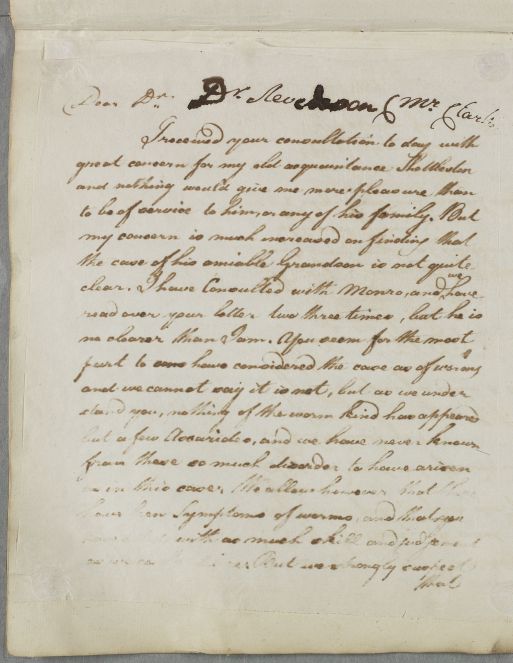 Dear Dr. Dr. Stevenson (Mr Clark
I received your consultation to day with
great concern for my old acquaintance
and nothing would give me more pleasure than
to be of service to him, or any of his family. But
my concern is much increased on finding that
the case of his amiable Grandson is not quite
clear. I have Consulted with Monro, and we have
read over your letter two three times, but he is
no clearer than I am. You seem for the most
part to have considered the case as of worms
and we cannot say it is not, but as we under
stand you, nothing of the worm kind has appeared
but a few Ascarides, and we have never known
from these so much disorder to have arisen
as in this case. We allow however that there
have been Symptoms of worms, and that you
with as much skill and judgment
But we strongly suspect
that